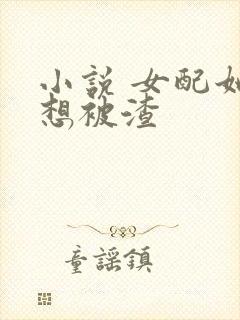 小说 女配她
想被渣
童謡鎮